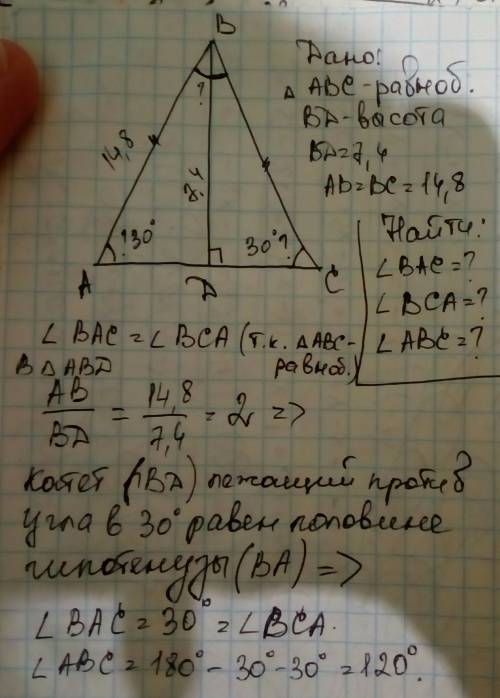 B
Дано:
△ ABC - равноб.
BД - высота
BД = 7,4
AB = BC = 14,8
Найти:
∠BAC = ?
∠BCA = ?
∠ABC = ?
?
14,8
7,4
?30°
30°?
A
Д
C
∠BAC = ∠BCA (т.к. △ABC -
равноб.)
В △ABД
AB/BД = 14,8/7,4 = 2 =>
Катет (BД) лежащий против
угла в 30° равен половине
гипотенузы (BA) =>
∠BAC = 30° = ∠BCA.
∠ABC = 180° - 30° - 30° = 120°.